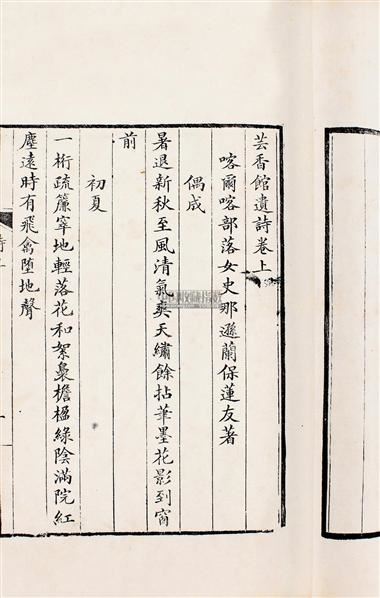 芸香館遺詩卷上
喀爾喀部落女史那遜蘭保蓮友著
偶成
暑退新秋至風清氣爽天繡餘拈華墨花影到窗
前
初夏
一桁疏簾窣地輕落花和絮裊檐楹綠陰滿院紅
塵遠時有飛禽墮地聲